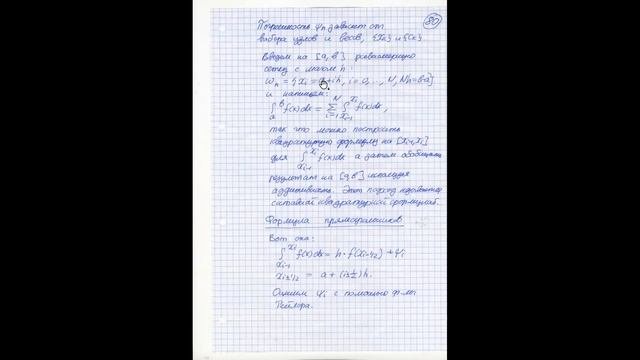 80
Погрешность ψn зависит от
выбора узлов и весов, {xk} и {Ck}
Введем на [a, b] равномерную
сетку с шагом h:
ωn = {xi = a+ih, i=0,..., N, Nh=b-a}
и напишем:
∫ₐᵇ f(x)dx = ∑ᵢ₌₁ᴺ ∫ₓᵢ₋₁ˣⁱ f(x)dx,
так что можно построить
квадратурную формулу на [xi-1, xi]
для ∫ₓᵢ₋₁ˣⁱ f(x)dx а затем обобщить
результат на [a, b] используя
аддитивность. Этот подход называется
составной квадратурной формулой.
Формула прямоугольников
Вот она:
∫ₓᵢ₋₁ˣⁱ f(x)dx = h·f(xi-1/2) + ψi
xi±1/2 = a + (i±1/2)h.
Оценим ψi с помощью ф-лы
Тейлора.